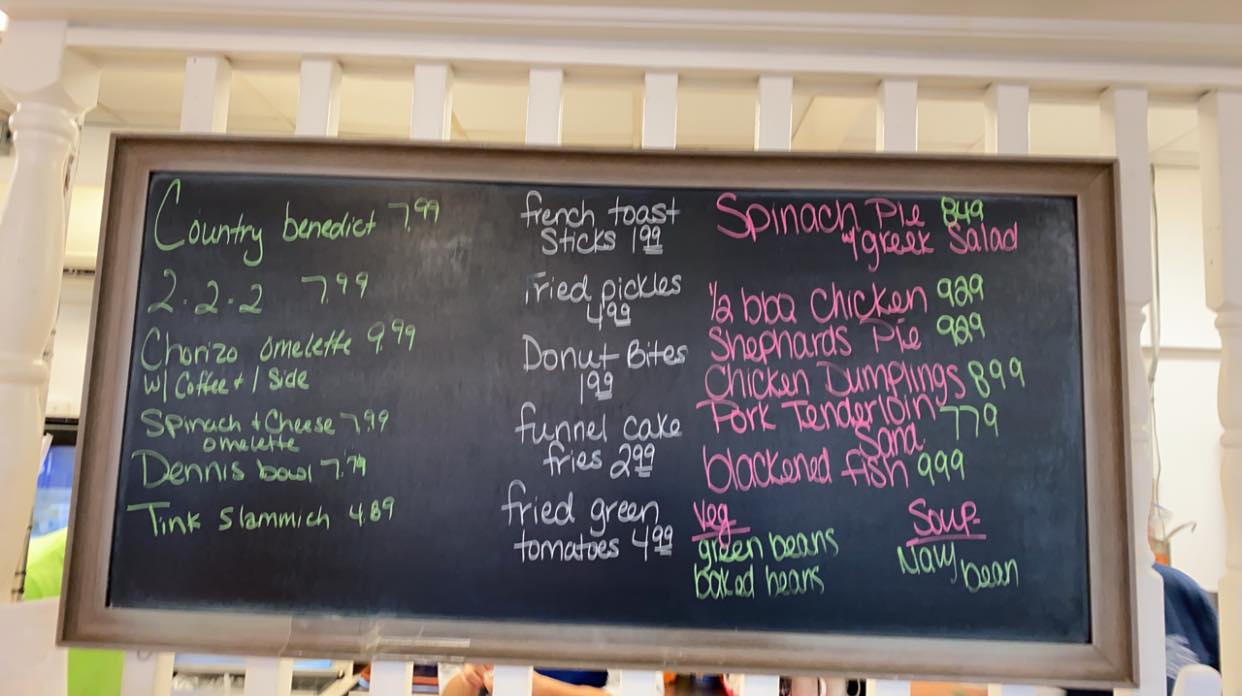 Country benedict 7.99
2.2.2 7.99
Chorizo omelette 9.99
w/ Coffee + 1 Side
Spinach + Cheese 7.99
omelette
Dennis bowl 7.79
Tink Slammich 4.89
french toast
Sticks 1.99
fried pickles
4.99
Donut Bites
1.99
funnel cake
fries 2.99
fried green
tomatoes 4.99
Spinach Pie 849
w/ greek Salad
1/2 bbq Chicken 929
Shephards Pie 929
Chicken Dumplings 899
Pork Tenderloin 779
Sand.
blackened fish 999
Veg
green beans
baked beans
Soup
Navy bean